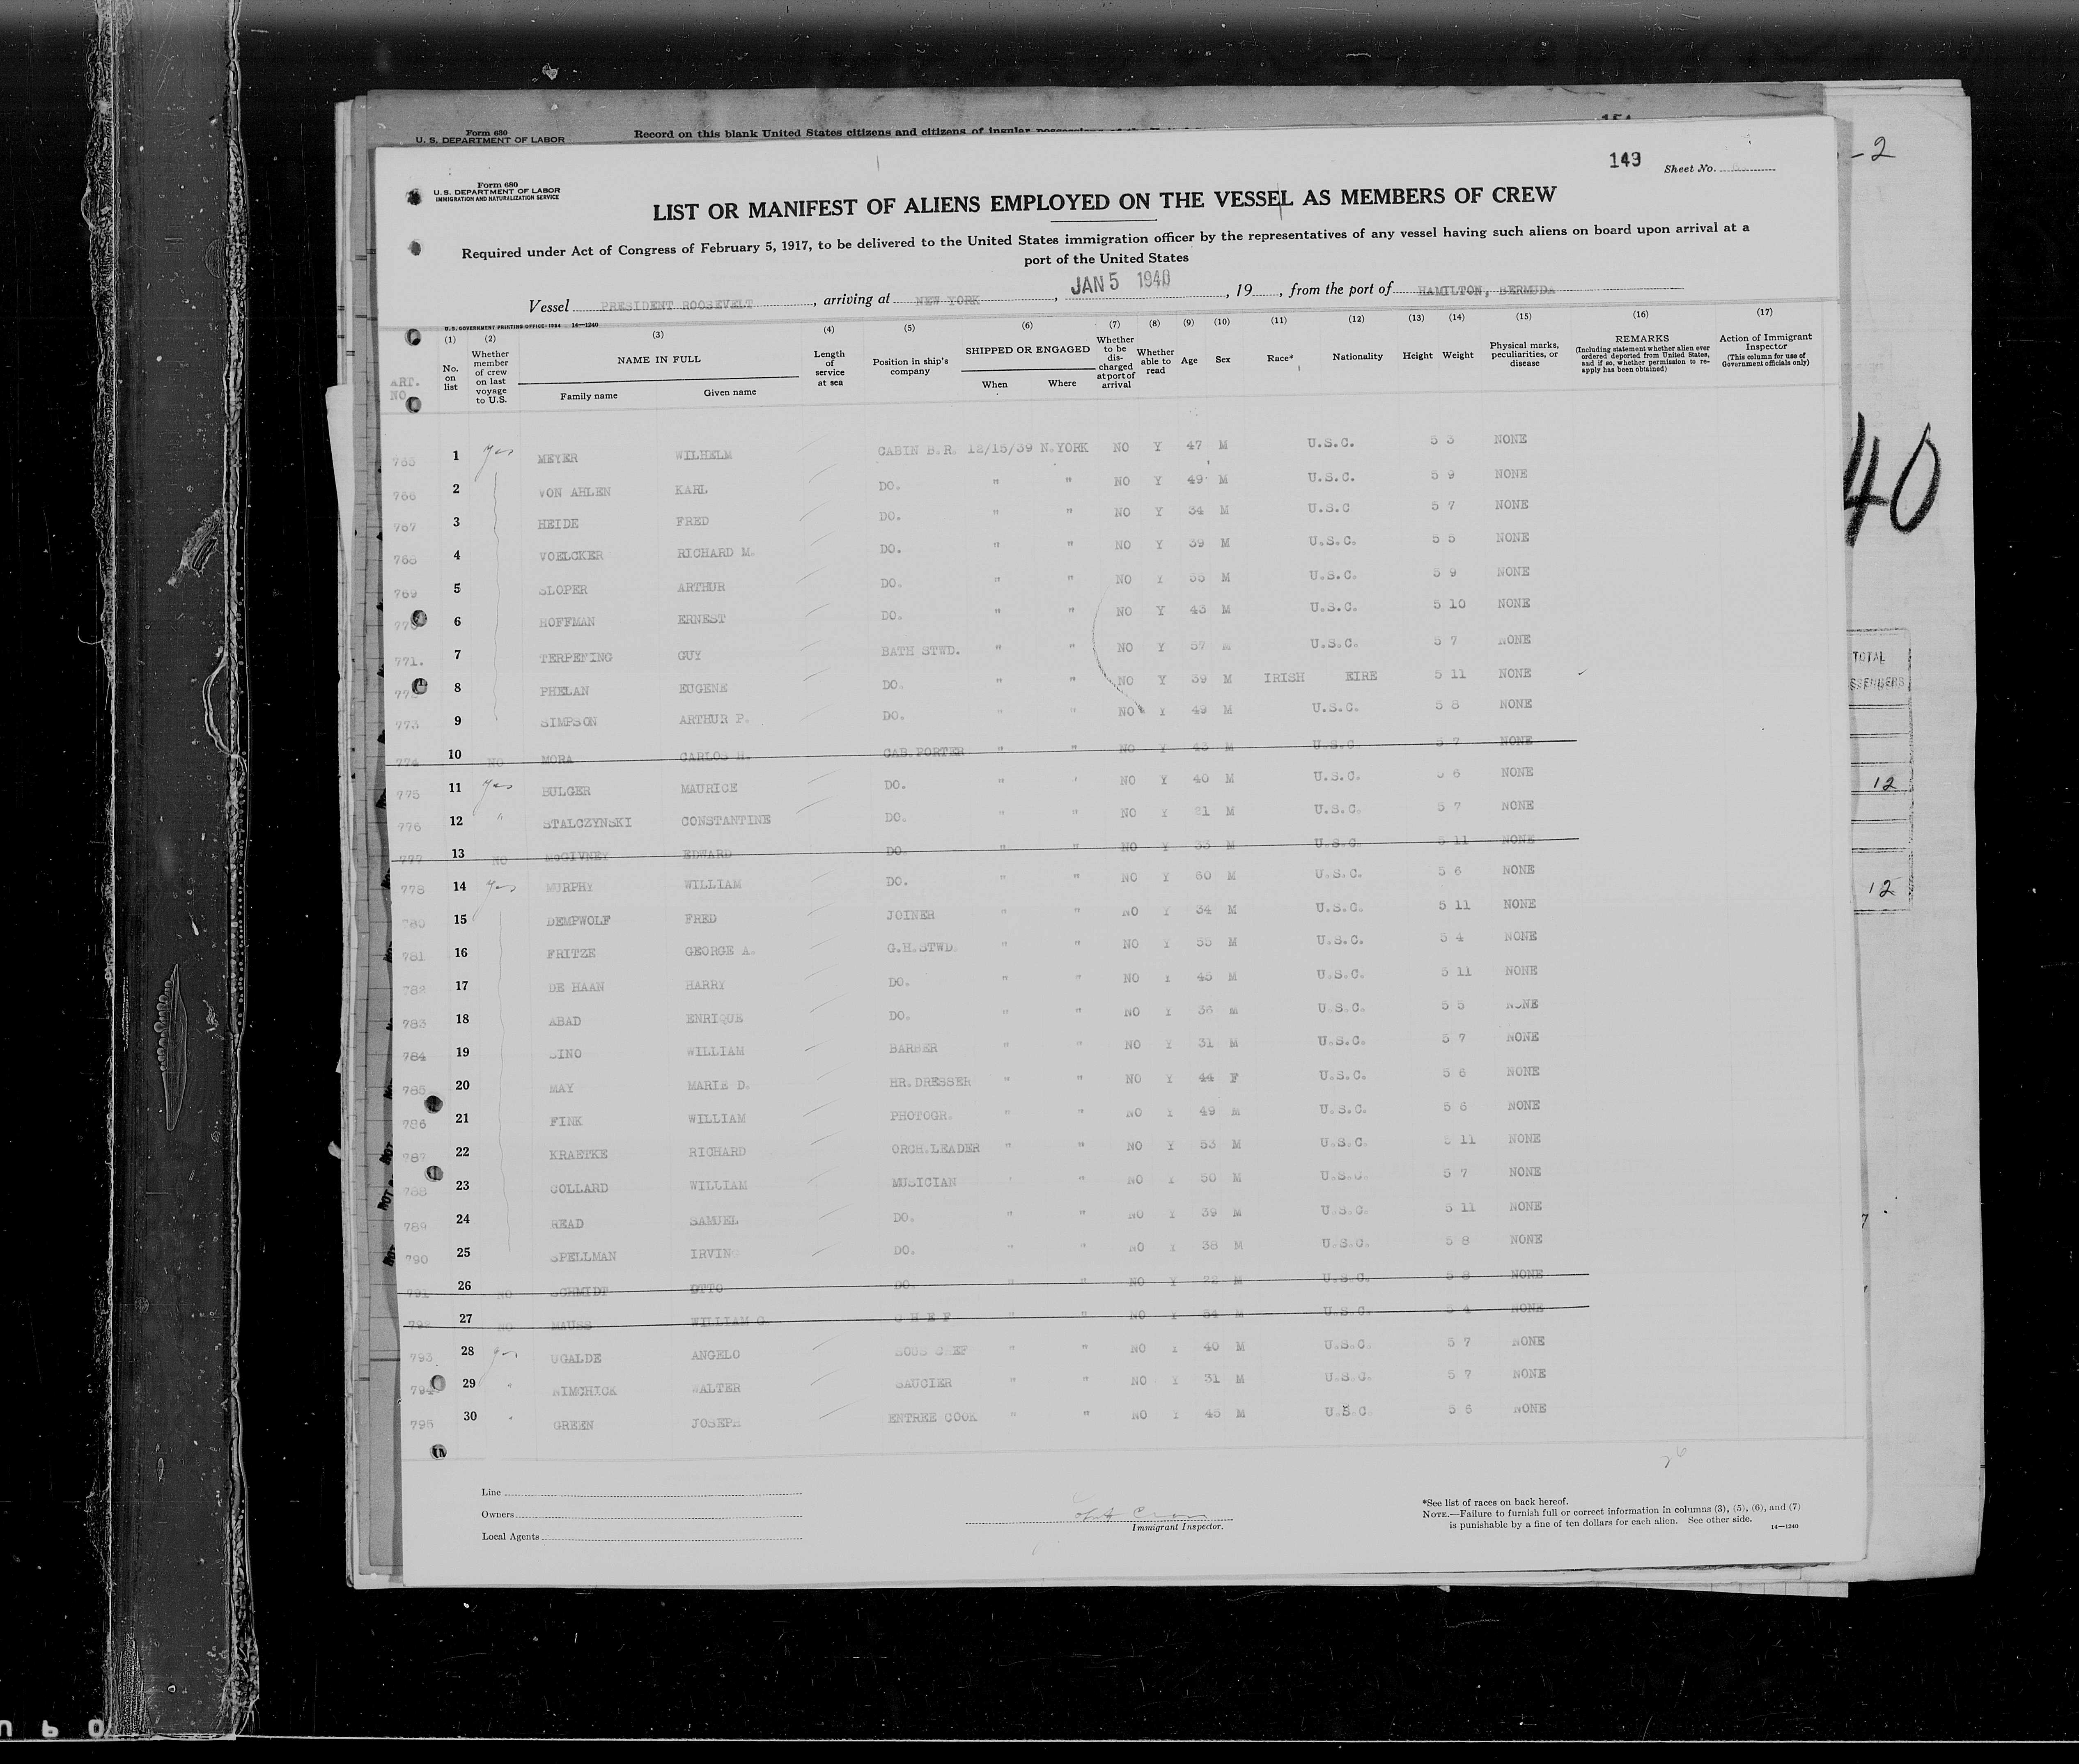 Form 630
U. S. DEPARTMENT OF LABOR
Record on this blank United States citizens and citizens of insular
-2
143 Sheet No.
Form 680
U. S. DEPARTMENT OF LABOR
IMMIGRATION AND NATURALIZATION SERVICE
LIST OR MANIFEST OF ALIENS EMPLOYED ON THE VESSEL AS MEMBERS OF CREW
Required under Act of Congress of February 5, 1917, to be delivered to the United States immigration officer by the representatives of any vessel having such aliens on board upon arrival at a
port of the United States
Vessel PRESIDENT ROOSEVELT, arriving at NEW YORK, JAN 5 1940, 19, from the port of HAMILTON, BERMUDA
U. S. GOVERNMENT PRINTING OFFICE: 1934 14—1240
(1) (2) (3) (4) (5) (6) (7) (8) (9) (10) (11) (12) (13) (14) (15) (16) (17)
ART. NO.
No. on list
Whether member of crew on last voyage to U.S.
NAME IN FULL
Family name Given name
Length of service at sea
Position in ship's company
SHIPPED OR ENGAGED
When Where
Whether to be discharged at port of arrival
Whether able to read
Age
Sex
Race*
Nationality
Height
Weight
Physical marks, peculiarities, or disease
REMARKS
(Including statement whether alien ever ordered deported from United States, and if so, whether permission to reapply has been obtained)
Action of Immigrant Inspector
(This column for use of Government officials only)
765 1 Yes MEYER WILHELM CABIN B.R. 12/15/39 N.YORK NO Y 47 M U.S.C. 5 3 NONE
766 2 VON AHLEN KARL DO. " " NO Y 49 M U.S.C. 5 9 NONE
767 3 HEIDE FRED DO. " " NO Y 34 M U.S.C 5 7 NONE
768 4 VOELCKER RICHARD M. DO. " " NO Y 39 M U.S.C. 5 5 NONE
769 5 SLOPER ARTHUR DO. " " NO Y 55 M U.S.C. 5 9 NONE
6 HOFFMAN ERNEST DO. " " NO Y 43 M U.S.C. 5 10 NONE
771. 7 TERPENING GUY BATH STWD. " " NO Y 57 M U.S.C. 5 7 NONE
8 PHELAN EUGENE DO. " " NO Y 39 M IRISH EIRE 5 11 NONE
773 9 SIMPSON ARTHUR P. DO. " " NO Y 49 M U.S.C. 5 8 NONE
774 10 NO MORA CARLOS H. CAB.PORTER " " NO Y 43 M U.S.C. 5 7 NONE
775 11 Yes BULGER MAURICE DO. " " NO Y 40 M U.S.C. 5 6 NONE
776 12 " STALCZYNSKI CONSTANTINE DO. " " NO Y 21 M U.S.C. 5 7 NONE
777 13 NO McGIVNEY EDWARD DO. " " NO Y 33 M U.S.C. 5 11 NONE
778 14 Yes MURPHY WILLIAM DO. " " NO Y 60 M U.S.C. 5 6 NONE
780 15 DEMPWOLF FRED JOINER " " NO Y 34 M U.S.C. 5 11 NONE
781 16 FRITZE GEORGE A. G.H.STWD. " " NO Y 55 M U.S.C. 5 4 NONE
782 17 DE HAAN HARRY DO. " " NO Y 45 M U.S.C. 5 11 NONE
783 18 ABAD ENRIQUE DO. " " NO Y 36 M U.S.C. 5 5 NONE
784 19 WILLIAM BARBER " " NO Y 31 M U.S.C. 5 7 NONE
785 20 MAY MARIE D. HR.DRESSER " " NO Y 44 F U.S.C. 5 6 NONE
786 21 FINK WILLIAM PHOTOGR. " " NO Y 49 M U.S.C. 5 6 NONE
787 22 KRAETKE RICHARD ORCH.LEADER " " NO Y 53 M U.S.C. 5 11 NONE
788 23 COLLARD WILLIAM MUSICIAN " " NO Y 50 M U.S.C. 5 7 NONE
789 24 READ SAMUEL DO. " " NO Y 39 M U.S.C. 5 11 NONE
790 25 SPELLMAN IRVING DO. " " NO Y 38 M U.S.C. 5 8 NONE
791 26 NO SCHMIDT OTTO DO. " " NO Y 22 M U.S.C. 5 8 NONE
792 27 NO MAUSS WILLIAM G. C H E F " " NO Y 54 M U.S.C. 5 4 NONE
793 28 Yes UGALDE ANGELO SOUS CHEF " " NO Y 40 M U.S.C. 5 7 NONE
794 29 " WALTER SAUCIER " " NO Y 31 M U.S.C. 5 7 NONE
795 30 " GREEN JOSEPH ENTREE COOK " " NO Y 45 M U.S.C 5 6 NONE
26
Line
Owners
Local Agents
Immigrant Inspector.
*See list of races on back hereof.
NOTE.—Failure to furnish full or correct information in columns (3), (5), (6), and (7)
is punishable by a fine of ten dollars for each alien. See other side. 14—1240
40
TOTAL
12
12